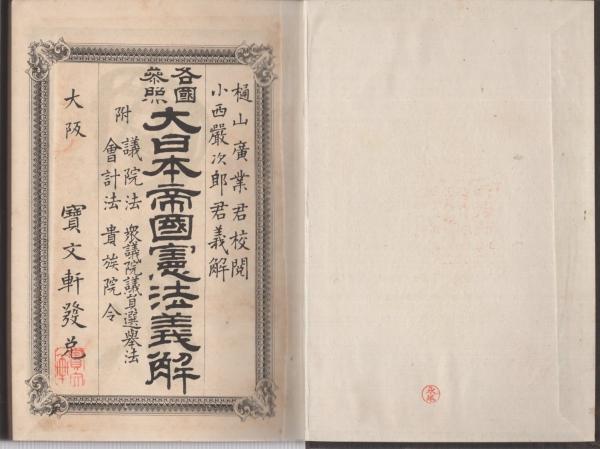 樋山廣業君校閲
小西嚴次郎君義解
各國
參照
大日本帝國憲法義解
附
議院法 衆議院議員選擧法
會計法 貴族院令
大阪 寶文軒發兌